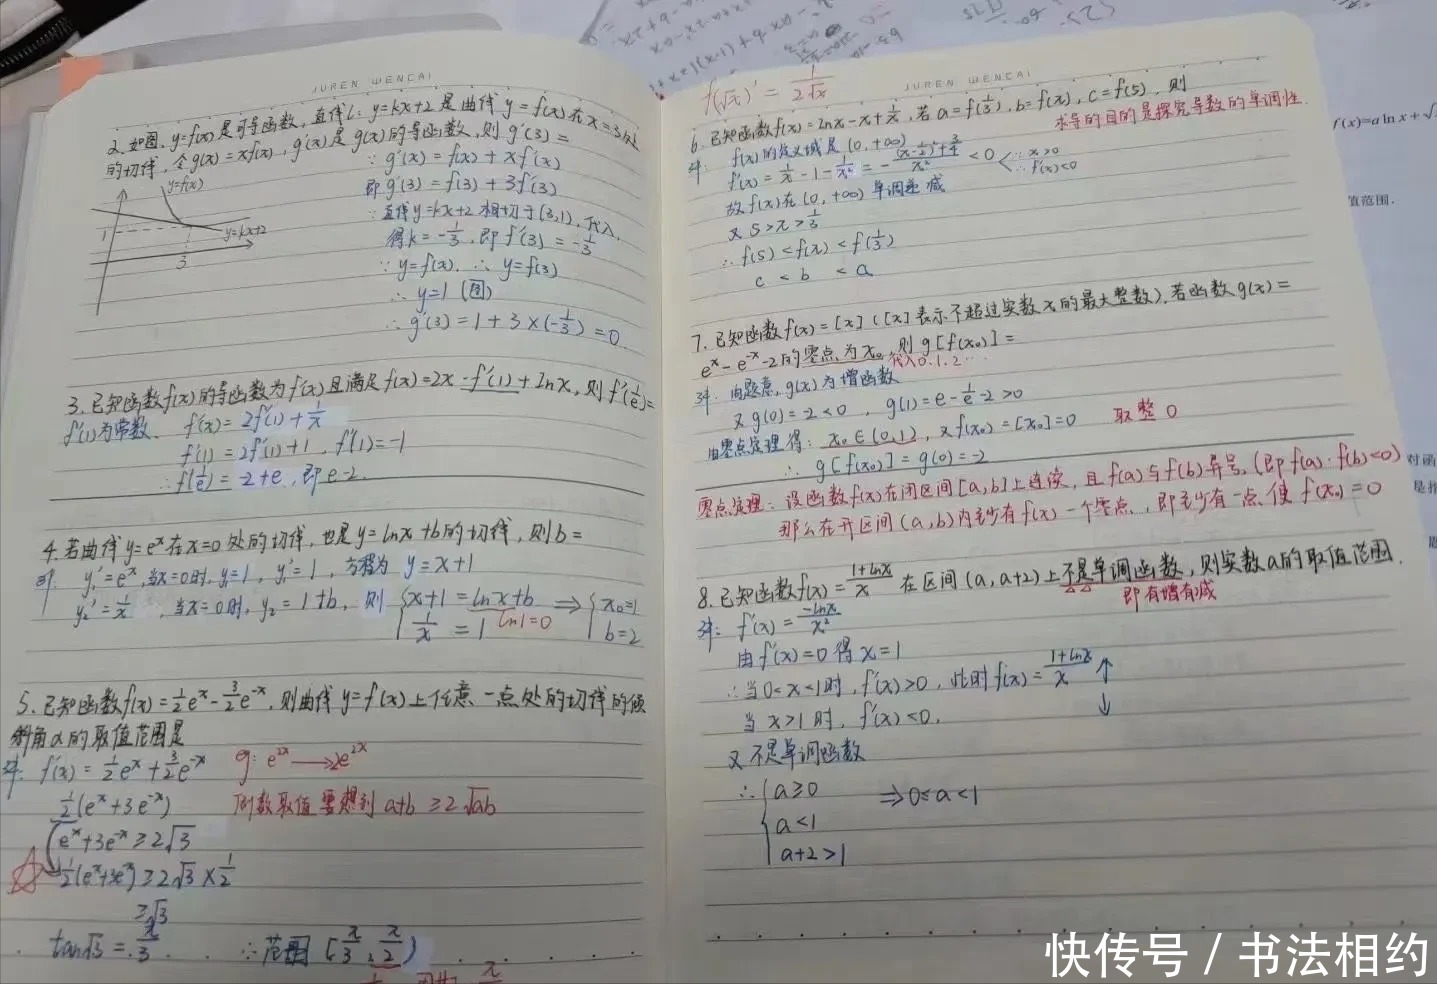 JUREN WENCAI
2. 如图,y=f(x)是可导函数,直线l:y=kx+2是曲线y=f(x)在x=3处
的切线,令g(x)=xf(x),g'(x)是g(x)的导函数,则g'(3)=
∵g'(x)=f(x)+xf'(x)
即g'(3)=f(3)+3f'(3)
∵直线y=kx+2相切于(3,1),代入,
得k=-1/3,即f'(3)=-1/3
∵y=f(x),∴y=f(3)
∴y=1(图)
∴g'(3)=1+3×(-1/3)=0
y=f(x)
1
y=kx+2
3
3. 已知函数f(x)的导函数为f'(x)且满足f(x)=2x-f'(1)+lnx,则f'(1/e)=
f'(1)为常数. f'(x)=2f'(1)+1/x
f'(1)=2f'(1)+1,f'(1)=-1
∴f'(1/e)=-2+e,即e-2.
4. 若曲线y=eˣ在x=0处的切线,也是y=lnx+b的切线,则b=
y₁'=eˣ,当x=0时,y₁=1,y₁'=1,方程为 y=x+1
y₂'=1/x,当x=0时,y₂=1+b,则 {x+1=lnx+b ⇒ {x₀=1
1/x=1 ln1=0 b=2
5. 已知函数f(x)=1/2eˣ-3/2e⁻ˣ,则曲线y=f(x)上任意一点处的切线的倾
斜角α的取值范围是
解:f'(x)=1/2eˣ+3/2e⁻ˣ eg: e²ˣ→2e²ˣ
1/2(eˣ+3e⁻ˣ) 函数取值要想到a+b≥2√ab
eˣ+3e⁻ˣ≥2√3
1/2(eˣ+3e⁻ˣ)≥2√3×1/2
≥√3
tan√3=π/3 ∴范围[π/3,π/2)
f(√x)'=1/2√x
JUREN WENCAI
6. 已知函数f(x)=lnx-x+1/x,若a=f(1/3),b=f(π),c=f(5),则
求导的目的是探究导数的单调性.
解:f(x)的定义域是(0,+∞)
f'(x)=1/x-1-1/x²=-((x-1/2)²+3/4)/x²<0 ∵x>0
∴f'(x)<0
故f(x)在(0,+∞)单调递减
又5>π>1/3
∴f(5)<f(π)<f(1/3)
c<b<a
7. 已知函数f(x)=[x]([x]表示不超过实数x的最大整数),若函数g(x)=
eˣ-e⁻ˣ-2的零点为x₀,则g[f(x₀)]=
代入0.1.2…
解:由题意,g(x)为增函数
又g(0)=-2<0,g(1)=e-1/e-2>0
由零点定理得:x₀∈(0,1),又f(x₀)=[x₀]=0 取整0
∴g[f(x₀)]=g(0)=-2
零点定理:设函数f(x)在闭区间[a,b]上连续,且f(a)与f(b)异号,(即f(a)·f(b)<0)
那么在开区间(a,b)内至少有f(x)一个零点,即至少有一点使f(x₀)=0
8. 已知函数f(x)=(1+lnx)/x 在区间(a,a+2)上不是单调函数,则实数a的取值范围.
即有增有减
解:f'(x)=-lnx/x²
由f'(x)=0得x=1
∴当0<x<1时,f'(x)>0,此时f(x)=(1+lnx)/x ↑
当x>1时,f'(x)<0, ↓
又不是单调函数
∴{a≥0 ⇒0≤a<1
a<1
a+2>1
f(x)=alnx+√
值范围.
对函
快传号/书法相约